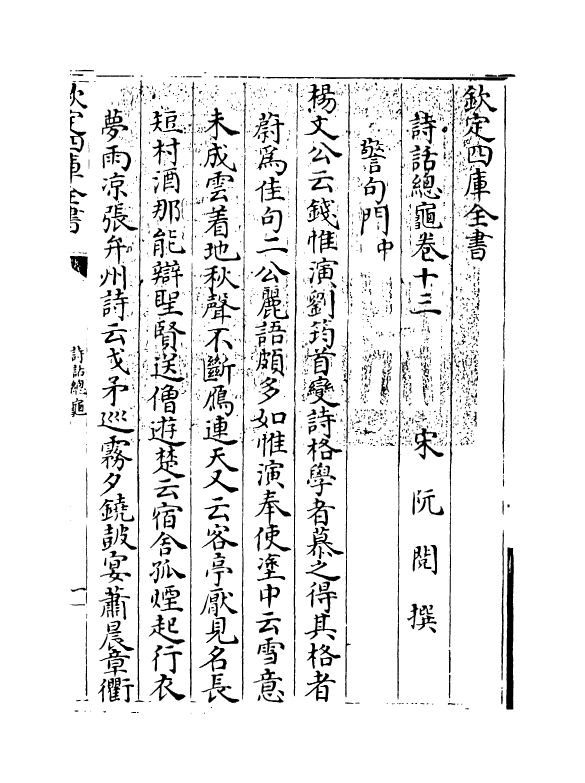 欽定四庫全書
詩話總龜卷十三　宋　阮閱　撰
警句門中
楊文公云錢惟演劉筠首變詩格學者慕之得其格者
蔚為佳句二公麗語頗多如惟演奉使塗中云雪意
未成雲着地秋聲不斷鴈連天又云客亭厭見名長
短村酒那能辯聖賢送僧遊楚云宿舍孤煙起行衣
夢雨凉張弁州詩云戈矛巡霧夕鐃鼓宴蕭晨章衢
欽定四庫全書
詩話總龜
一